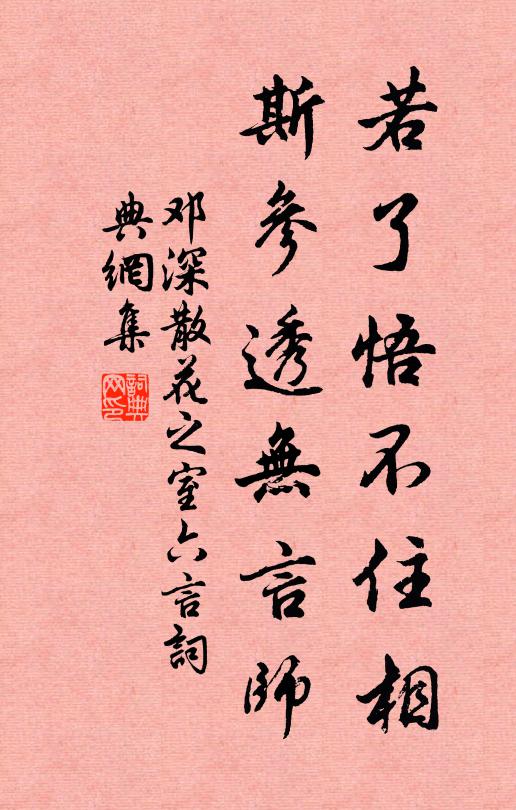 若了悟不住相
斯參透無言師
邓深散花之室六言詞
典網集
詞典网印